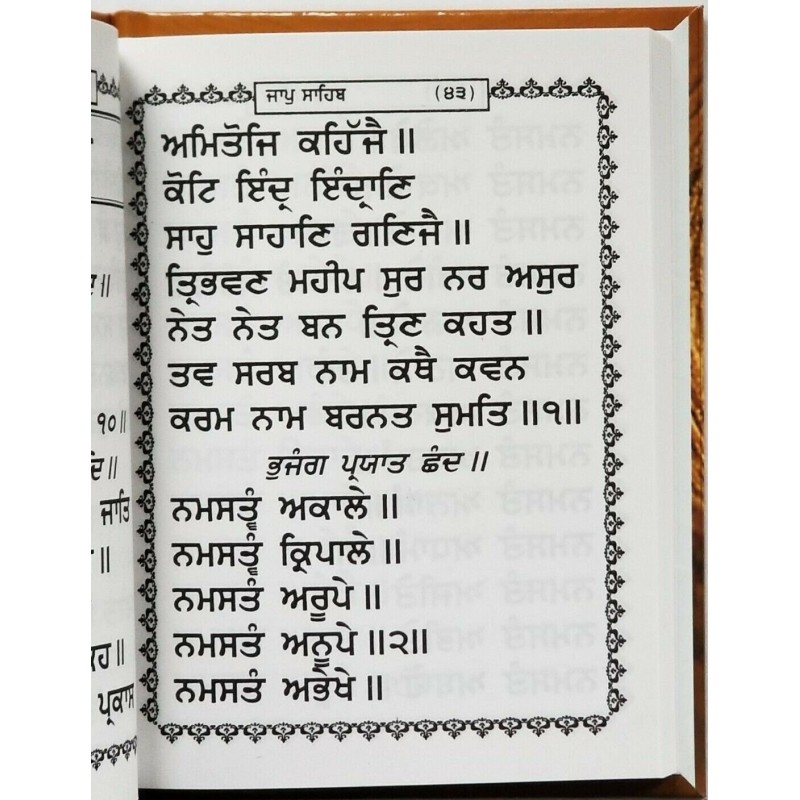 ਜਾਪੁ ਸਾਹਿਬ (੪੩)
ਅਮਿਤੋਜਿ ਕਹਿੱਜੈ ॥
ਕੋਟਿ ਇੰਦ੍ਰ ਇੰਦ੍ਰਾਣਿ
ਸਾਹੁ ਸਾਹਾਣਿ ਗਣਿਜੈ ॥
ਤ੍ਰਿਭਵਣ ਮਹੀਪ ਸੁਰ ਨਰ ਅਸੁਰ
ਨੇਤ ਨੇਤ ਬਨ ਤ੍ਰਿਣ ਕਹਤ ॥
ਤਵ ਸਰਬ ਨਾਮ ਕਥੈ ਕਵਨ
ਕਰਮ ਨਾਮ ਬਰਨਤ ਸੁਮਤਿ ॥੧॥
ਭੁਜੰਗ ਪ੍ਰਯਾਤ ਛੰਦ ॥
ਨਮਸਤ੍ਵੰ ਅਕਾਲੇ ॥
ਨਮਸਤ੍ਵੰ ਕ੍ਰਿਪਾਲੇ ॥
ਨਮਸਤੰ ਅਰੂਪੇ ॥
ਨਮਸਤੰ ਅਨੂਪੇ ॥੨॥
ਨਮਸਤੰ ਅਭੇਖੇ ॥
੧੦॥
ਜਾਤਿ
ਪ੍ਰਕਾਸ